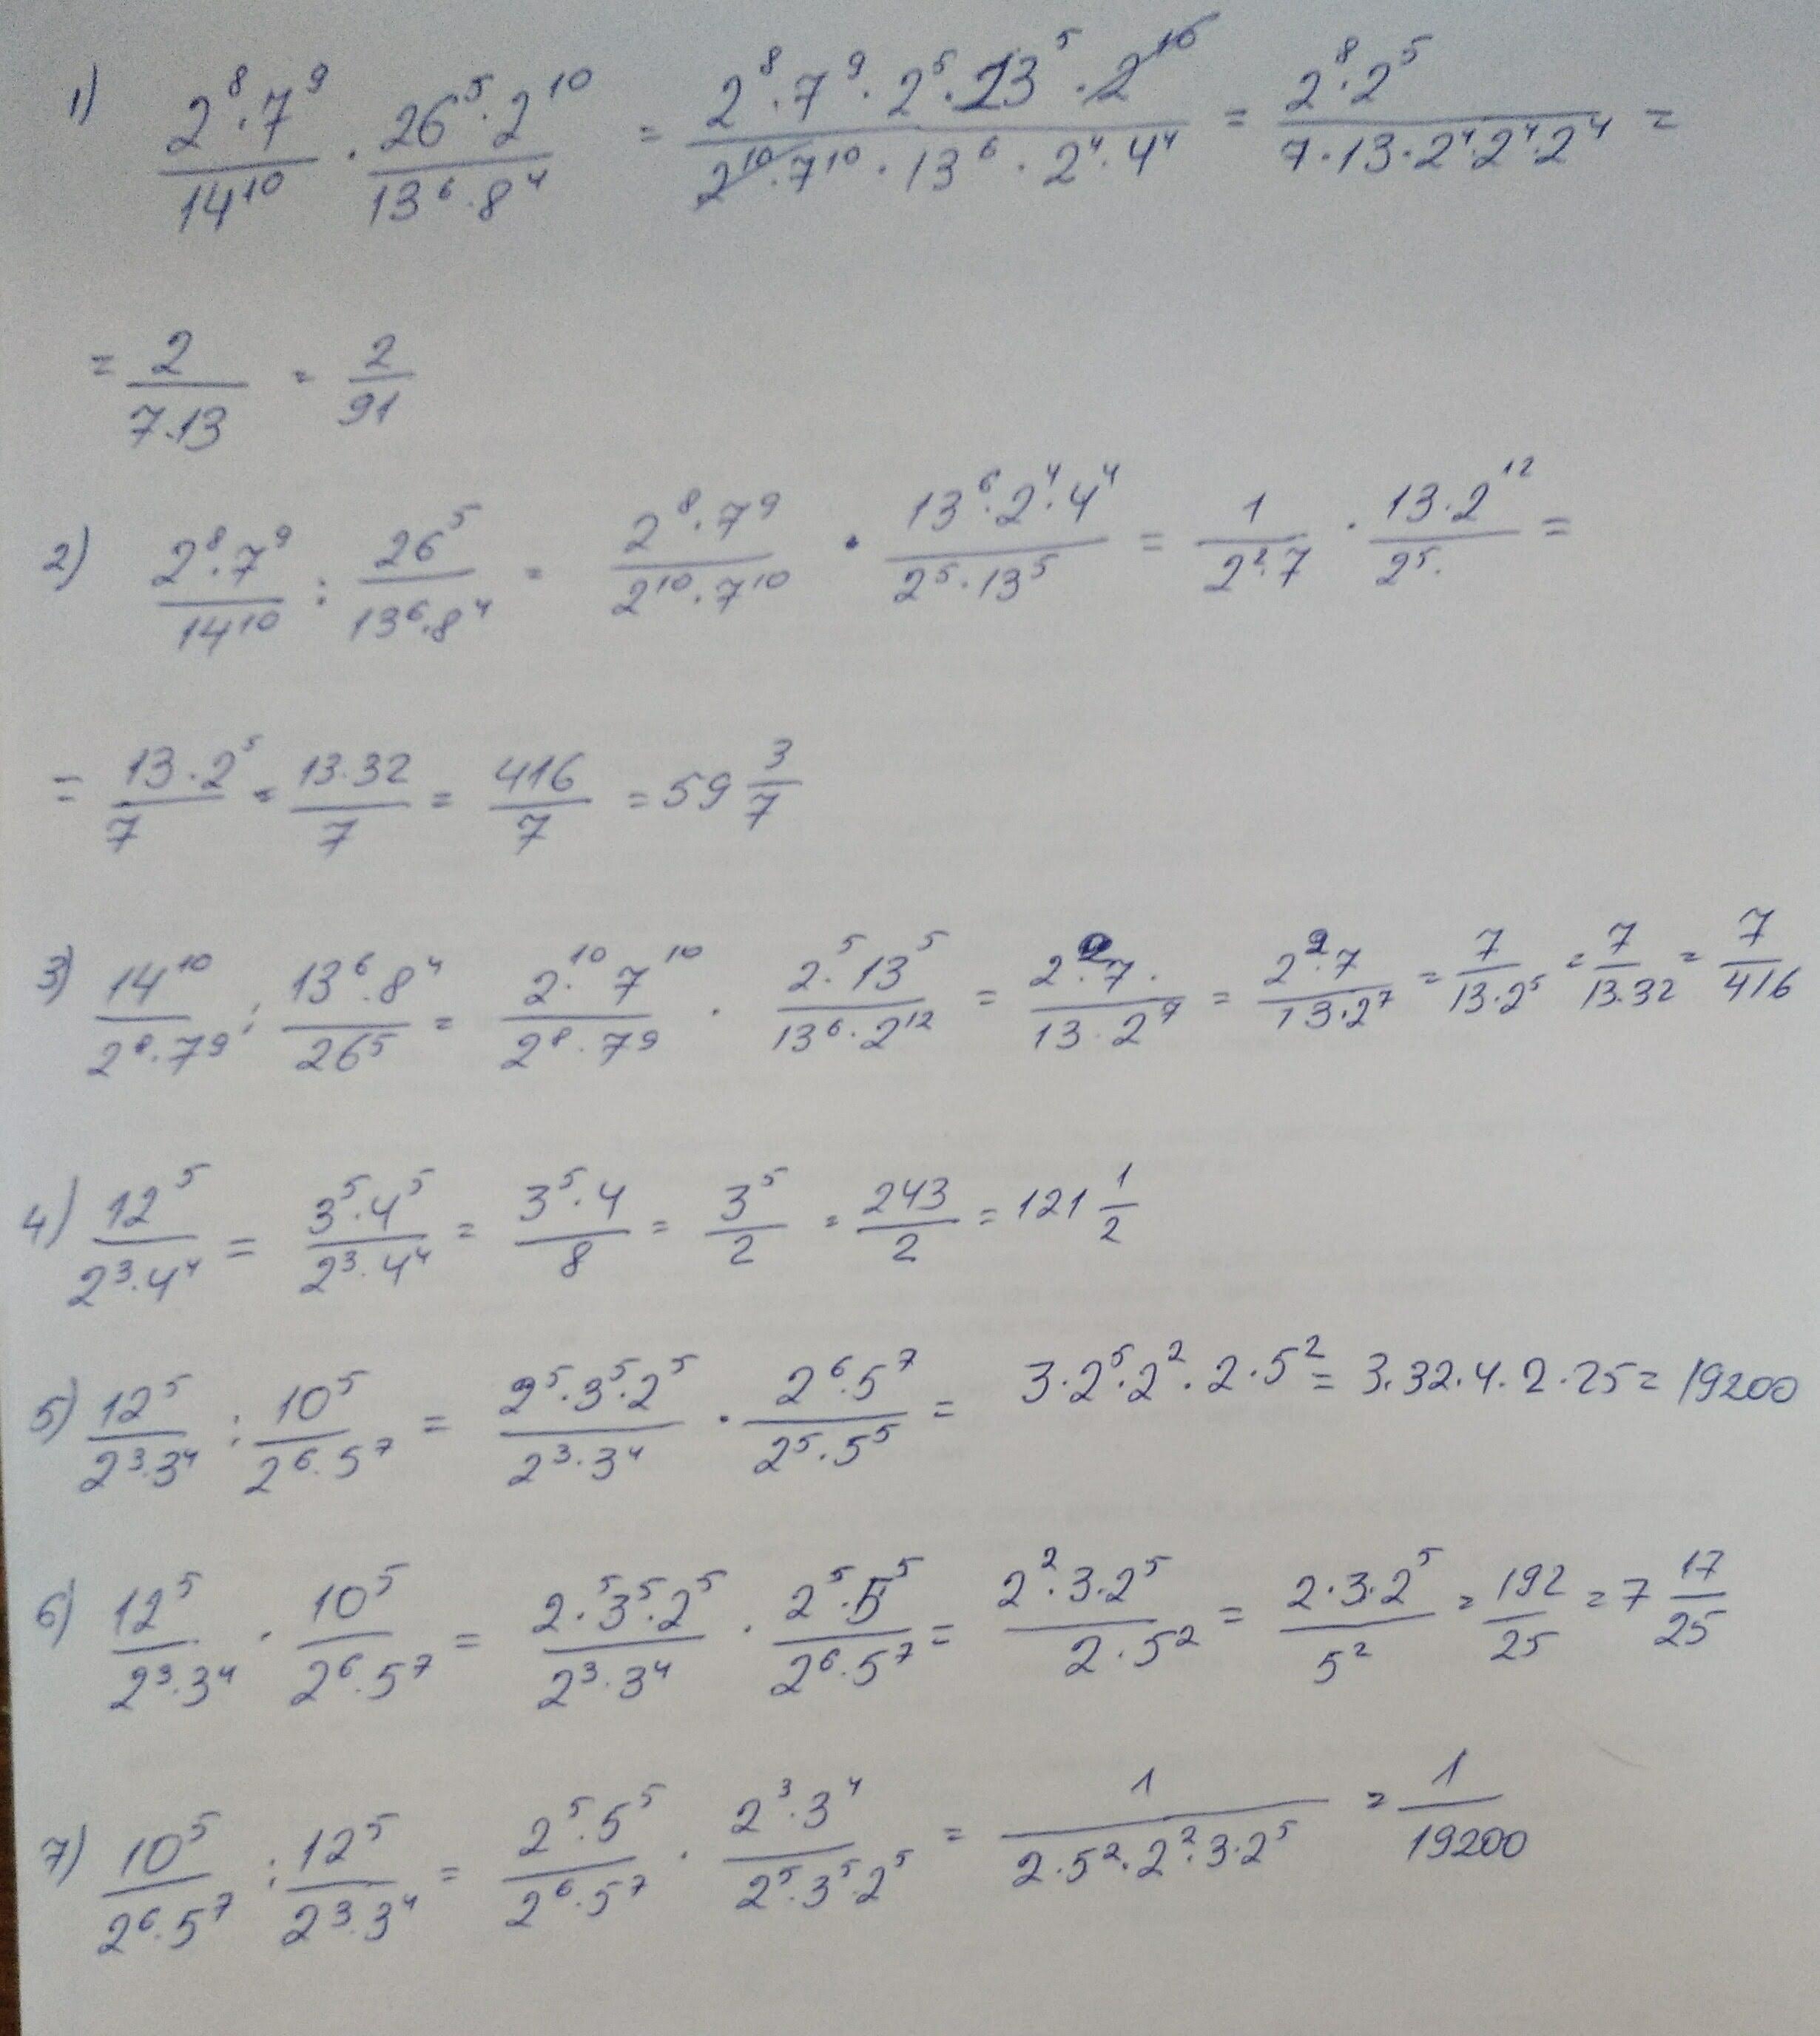 1) \frac{2^8 \cdot 7^9}{14^{10}} \cdot \frac{26^5 \cdot 2^{10}}{13^6 \cdot 8^4} = \frac{2^8 \cdot 7^9 \cdot 2^5 \cdot 13^5 \cdot 2^{10}}{2^{10} \cdot 7^{10} \cdot 13^6 \cdot 2^4 \cdot 4^4} = \frac{2^8 \cdot 2^5}{7 \cdot 13 \cdot 2^4 \cdot 2^4 \cdot 2^4} =
= \frac{2}{7 \cdot 13} = \frac{2}{91}
2) \frac{2^8 \cdot 7^9}{14^{10}} : \frac{26^5}{13^6 \cdot 8^4} = \frac{2^8 \cdot 7^9}{2^{10} \cdot 7^{10}} \cdot \frac{13^6 \cdot 2^4 \cdot 4^4}{2^5 \cdot 13^5} = \frac{1}{2^2 \cdot 7} \cdot \frac{13 \cdot 2^{12}}{2^5 \cdot} =
= \frac{13 \cdot 2^5}{7} = \frac{13 \cdot 32}{7} = \frac{416}{7} = 59 \frac{3}{7}
3) \frac{14^{10}}{2^8 \cdot 7^9} : \frac{13^6 \cdot 8^4}{26^5} = \frac{2^{10} \cdot 7^{10}}{2^8 \cdot 7^9} \cdot \frac{2^5 \cdot 13^5}{13^6 \cdot 2^{12}} = \frac{2^2 \cdot 7 \cdot}{13 \cdot 2^7} = \frac{2^2 \cdot 7}{13 \cdot 2^7} = \frac{7}{13 \cdot 2^5} = \frac{7}{13 \cdot 32} = \frac{7}{416}
4) \frac{12^5}{2^3 \cdot 4^4} = \frac{3^5 \cdot 4^5}{2^3 \cdot 4^4} = \frac{3^5 \cdot 4}{8} = \frac{3^5}{2} = \frac{243}{2} = 121 \frac{1}{2}
5) \frac{12^5}{2^3 \cdot 3^4} : \frac{10^5}{2^6 \cdot 5^7} = \frac{2^5 \cdot 3^5 \cdot 2^5}{2^3 \cdot 3^4} \cdot \frac{2^6 \cdot 5^7}{2^5 \cdot 5^5} = 3 \cdot 2^5 \cdot 2^2 \cdot 2 \cdot 5^2 = 3 \cdot 32 \cdot 4 \cdot 2 \cdot 25 = 19200
6) \frac{12^5}{2^3 \cdot 3^4} \cdot \frac{10^5}{2^6 \cdot 5^7} = \frac{2^5 \cdot 3^5 \cdot 2^5}{2^3 \cdot 3^4} \cdot \frac{2^5 \cdot 5^5}{2^6 \cdot 5^7} = \frac{2^2 \cdot 3 \cdot 2^5}{2 \cdot 5^2} = \frac{2 \cdot 3 \cdot 2^5}{5^2} = \frac{192}{25} = 7 \frac{17}{25}
7) \frac{10^5}{2^6 \cdot 5^7} : \frac{12^5}{2^3 \cdot 3^4} = \frac{2^5 \cdot 5^5}{2^6 \cdot 5^7} \cdot \frac{2^3 \cdot 3^4}{2^5 \cdot 3^5 \cdot 2^5} = \frac{1}{2 \cdot 5^2 \cdot 2^2 \cdot 3 \cdot 2^5} = \frac{1}{19200}